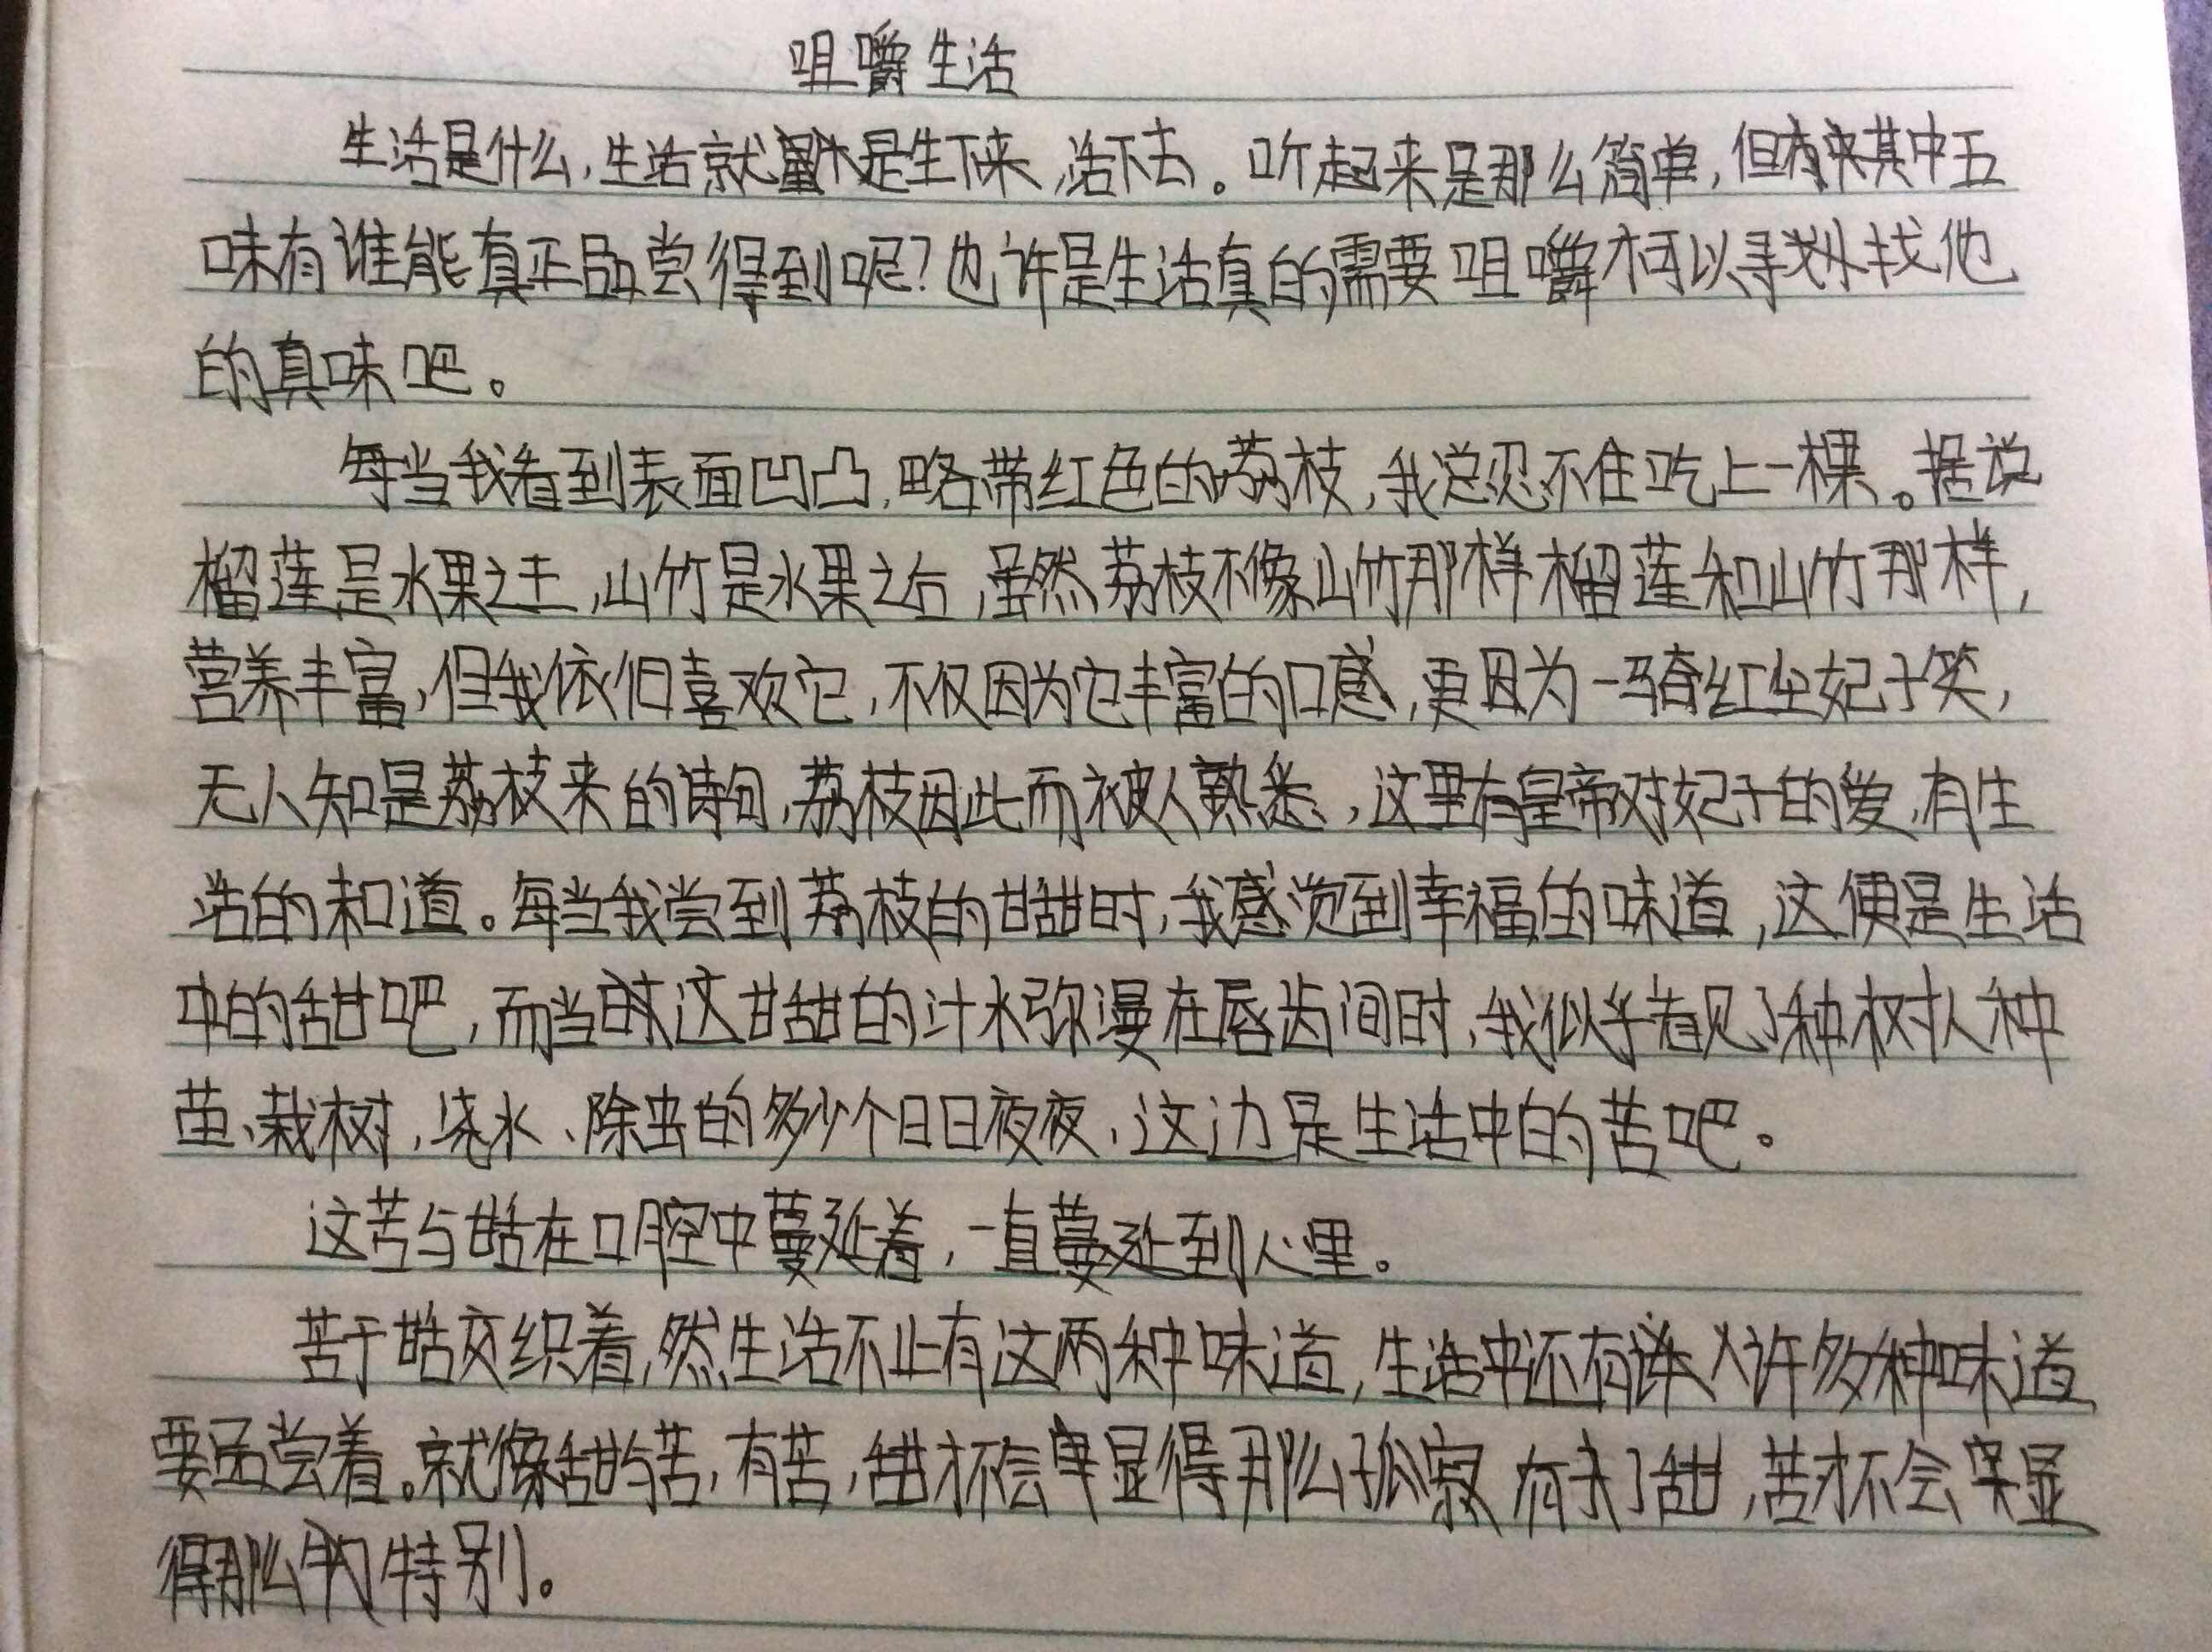 咀嚼生活
生活是什么,生活就是生下来,活下去。听起来是那么简单,但其中五
味有谁能真正品尝得到呢?也许是生活真的需要咀嚼才可以寻找他
的真味吧。
每当我看到表面凹凸,略带红色的荔枝,我总忍不住吃上一棵。据说
榴莲是水果之王,山竹是水果之后,虽然荔枝不像山竹那样榴莲和山竹那样,
营养丰富,但我依旧喜欢它,不仅因为它丰富的口感,更因为一骑红尘妃子笑,
无人知是荔枝来的诗句,荔枝因此而被人熟悉,这里有皇帝对妃子的爱,有生
活的和道。每当我尝到荔枝的甘甜时,我感觉到幸福的味道,这便是生活
中的甜吧,而当这甘甜的汁水弥漫在唇齿间时,我似乎看见了种树人种
苗、栽树,浇水、除虫的多少个日日夜夜,这边是生活中的苦吧。
这苦与甜在口腔中蔓延着,一直蔓延到心里。
苦于甜交织着,然生活不止有这两种味道,生活中还有许多种味道
要品尝着。就像甜与苦,有苦,甜才不会显得那么孤寂 有了甜,苦才不会显
得那么特别。